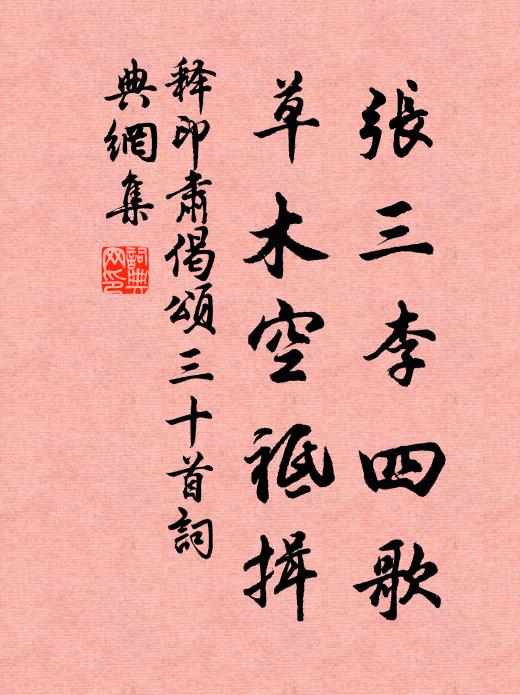 張三李四歌
草木空祗揖
释印肅偈頌三十首詞
典網集
詞典
网印